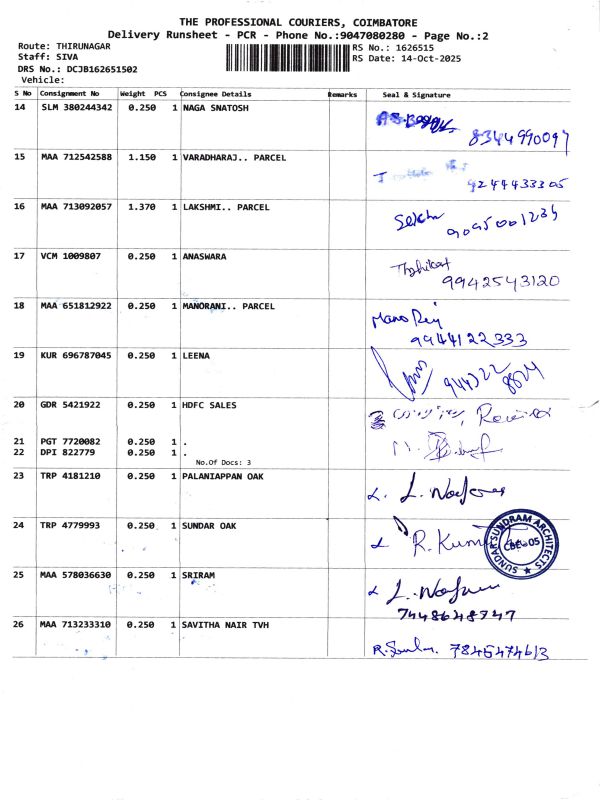 THE PROFESSIONAL COURIERS, COIMBATORE
Delivery Runsheet - PCR - Phone No.:9047080280 - Page No.:2
Route: THIRUNAGAR
Staff: SIVA
DRS No.: DCJB162651502
Vehicle:
RS No.: 1626515
RS Date: 14-Oct-2025
S No Consignment No Weight PCS Consignee Details Remarks Seal & Signature
14 SLM 380244342 0.250 1 NAGA SNATOSH
8344990097
15 MAA 712542588 1.150 1 VARADHARAJ.. PARCEL
9244433305
16 MAA 713092057 1.370 1 LAKSHMI.. PARCEL
9095001234
17 VCM 1009807 0.250 1 ANASWARA
9942543120
18 MAA 651812922 0.250 1 MANORANI.. PARCEL
9944122333
19 KUR 696787045 0.250 1 LEENA
20 GDR 5421922 0.250 1 HDFC SALES
21 PGT 7720082 0.250 1 .
22 DPI 822779 0.250 1 .
No.Of Docs: 3
23 TRP 4181210 0.250 1 PALANIAPPAN OAK
24 TRP 4779993 0.250 1 SUNDAR OAK
R. Kum
SUNDAR SUNDRAM ARCHITECTS
25 MAA 578036630 0.250 1 SRIRAM
7448648747
26 MAA 713233310 0.250 1 SAVITHA NAIR TVH
7845474613